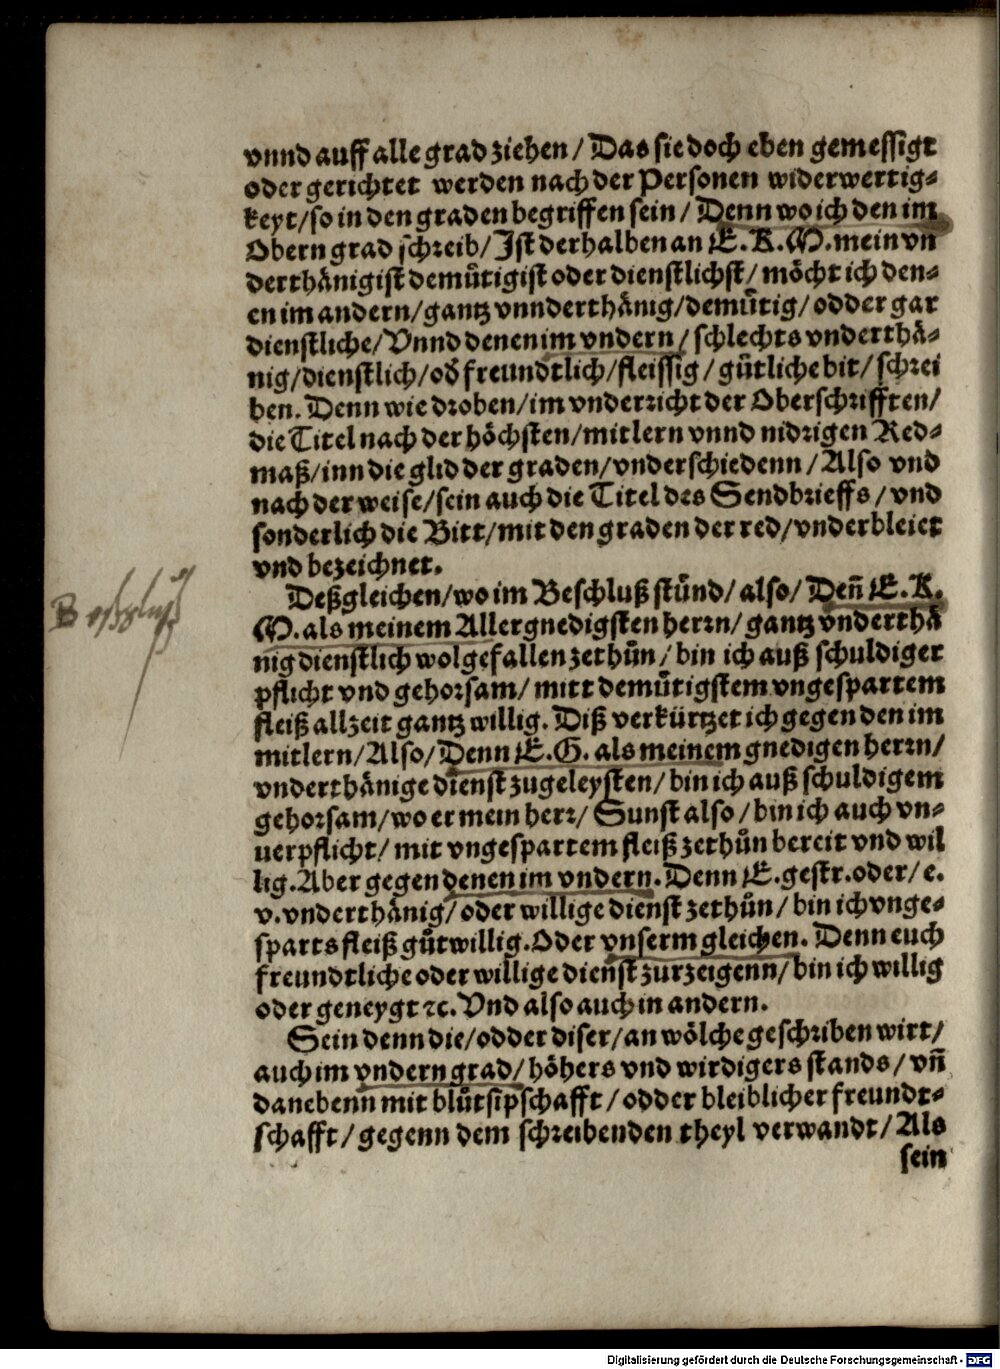 vnnd auff alle grad ziehen / Das sie doch eben gemessigt
oder gerichtet werden nach der Personen widerwertig⸗
keyt/so in den graden begriffen sein / Denn wo ich den im
Obern grad schreib/ Jst derhalben an E. K. M. mein vn
derthånigist demůtigist oder dienstlichst/ möcht ich den⸗
en im andern/gantz vnnderthånig/demůtig/ odder gar
dienstliche/ Vnnd denen im vndern / schlechts vnderthå⸗
nig/dienstlich/od̕ freundtlich/fleissig / gůtliche bit/ schrei
ben. Denn wie droben/im vnderricht der Oberschrifften/
die Titel nach der höchsten/mitlern vnnd nidrigen Red⸗
maß/inn die glid der graden/vnderschiedenn / Also vnd
nach der weise/sein auch die Titel des Sendbrieffs / vnd
sonderlich die Bitt/mit den graden der red/vnderbleiet
vnd bezeichnet.
Beschluß
Deßgleichen/wo im Beschluß stůnd/ also/ Den̄ E. K.
M. als meinem Allergnedigsten herrn/ gantz vnderthå
nig dienstlich wolgefallen zethůn / bin ich auß schuldiger
pflicht vnd gehorsam/ mitt demůtigstem vngespartem
fleiß allzeit gantz willig. Diß verkürtzet ich gegen den im
mitlern/Also/ Denn E. G. als meinem gnedigen herrn/
vnderthånige dienst zugeleysten/ bin ich auß schuldigem
gehorsam/wo er mein herr/ Sunst also / bin ich auch vn⸗
uerpflicht/ mit vngespartem fleiß zethůn bereit vnd wil
lig. Aber gegen denen im vndern. Denn E. gestr. oder/ e.
v. vnderthånig/ oder willige dienst zethůn/ bin ich vnge⸗
sparts fleiß gůtwillig. Oder vnserm gleichen. Denn euch
freundtliche oder willige dienst zurzeigenn/ bin ich willig
oder geneygt ⁊c. Vnd also auch in andern.
Sein denn die/odder diser/an wölche geschriben wirt/
auch im vndern grad/ höhers vnd wirdigers stands / vn̄
danebenn mit blůtsipschafft/ odder bleiblicher freundt⸗
schafft / gegenn dem schreibenden theyl verwandt/ Als
sein
Digitalisierung gefördert durch die Deutsche Forschungsgemeinschaft -
DFG